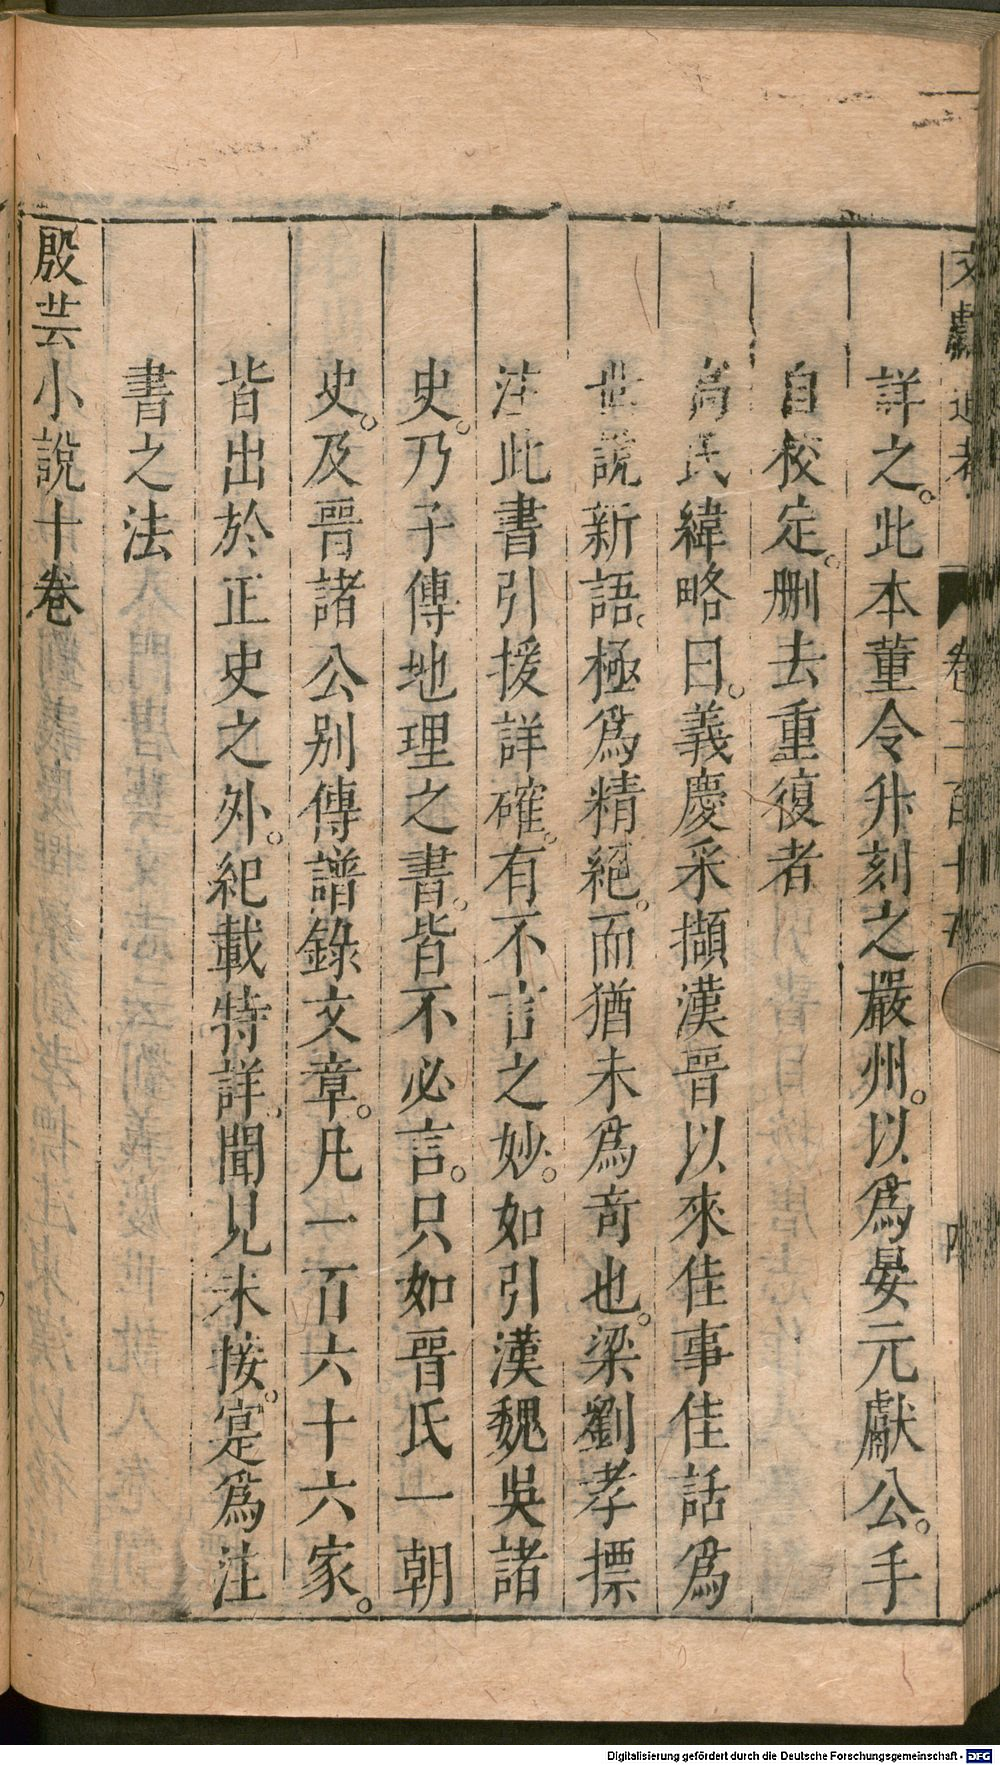 文獻通考 卷二百十五 四
詳之。此本董令升刻之嚴州。以爲晏元獻公。手
自校定。刪去重復者
高氏緯略曰。義慶采擷漢晉以來佳事佳話爲
世說新語。極爲精絕。而猶未爲奇也。梁劉孝摽
注此書引援詳確。有不言之妙。如引漢魏吳諸
史。乃子傳地理之書。皆不必言。只如晉氏一朝
史。及晉諸公别傳譜錄文章。凡一百六十六家。
皆出於正史之外。紀載特詳。聞見未接。寔爲注
書之法
殷芸小說十卷
Digitalisierung gefördert durch die Deutsche Forschungsgemeinschaft - DFG